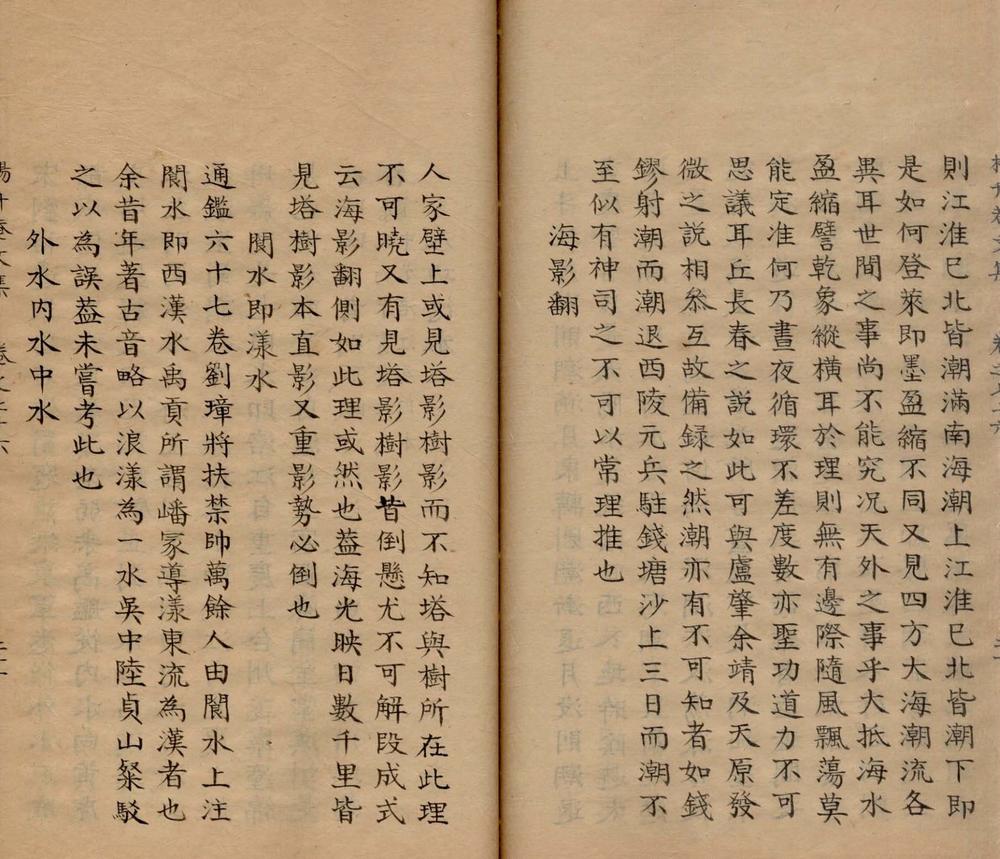 則江淮巳北皆潮滿南海潮上江淮巳北皆潮下即
是如何登萊即墨盈縮不同又見四方大海潮流各
異耳世間之事尚不能究况天外之事乎大抵海水
盈縮譬乾象縱橫耳於理則無有邊際隨風飄蕩莫
能定准何乃晝夜循環不差度數亦聖功道力不可
思議耳丘長春之説如此可與盧肇余靖及天原發
微之説相叅互故備録之然潮亦有不可知者如錢
鏐射潮而潮退西陵元兵駐錢塘沙上三日而潮不
至似有神司之不可以常理推也
海影翻
人家壁上或見塔影樹影而不知塔與樹所在此理
不可曉又有見塔影樹影皆倒懸尤不可解段成式
云海影翻側如此理或然也葢海光映日數千里皆
見塔樹影本直影又重影勢必倒也
閬水即漾水
通鑑六十七卷劉璋將扶禁帥萬餘人由閬水上注
閬水即西漢水禹貢所謂嶓冢導漾東流為漢者也
余昔年著古音略以浪漾為一水吳中陸貞山粲駁
之以為誤葢未嘗考此也
外水内水中水